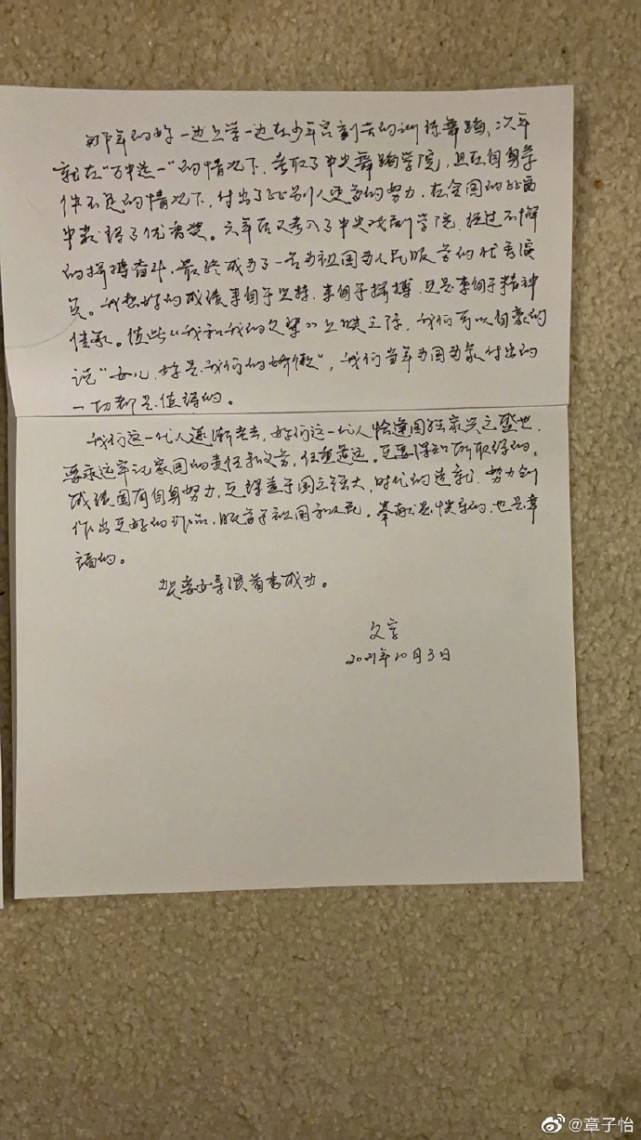 那年的妳一边上学一边在少年宫刻苦的训练舞蹈、次年
就在"万中选一"的情况下，考取了中央舞蹈学院，且在自身条
件不足的情况下，付出了比别人更多的努力，在全国的比赛
中获得了优秀奖。六年后又考入了中央戏剧学院，经过不懈
的拼搏奋斗，最终成为了一名为祖国为人民服务的优秀演
员。我想妳的成绩来自于坚持，来自于拼搏，更是来自于精神
传承。值此《我和我的父辈》上映之际，我们可以自豪的
说"女儿，妳是我们的骄傲"，我们当年为国为家付出的
一切都是值得的。
我们这一代人逐渐老去，妳们这一代人恰逢国强家兴之盛世，
要永远牢记家国的责任和义务，任重道远。更要深知所取得的
成绩固有自身努力，更得益于国之强大，时代的造就，努力创
作出更好的作品，服务于祖国和人民。奉献是快乐的，也是幸
福的。
祝
女导演首秀成功。
父字
2021年10月3日
@章子怡